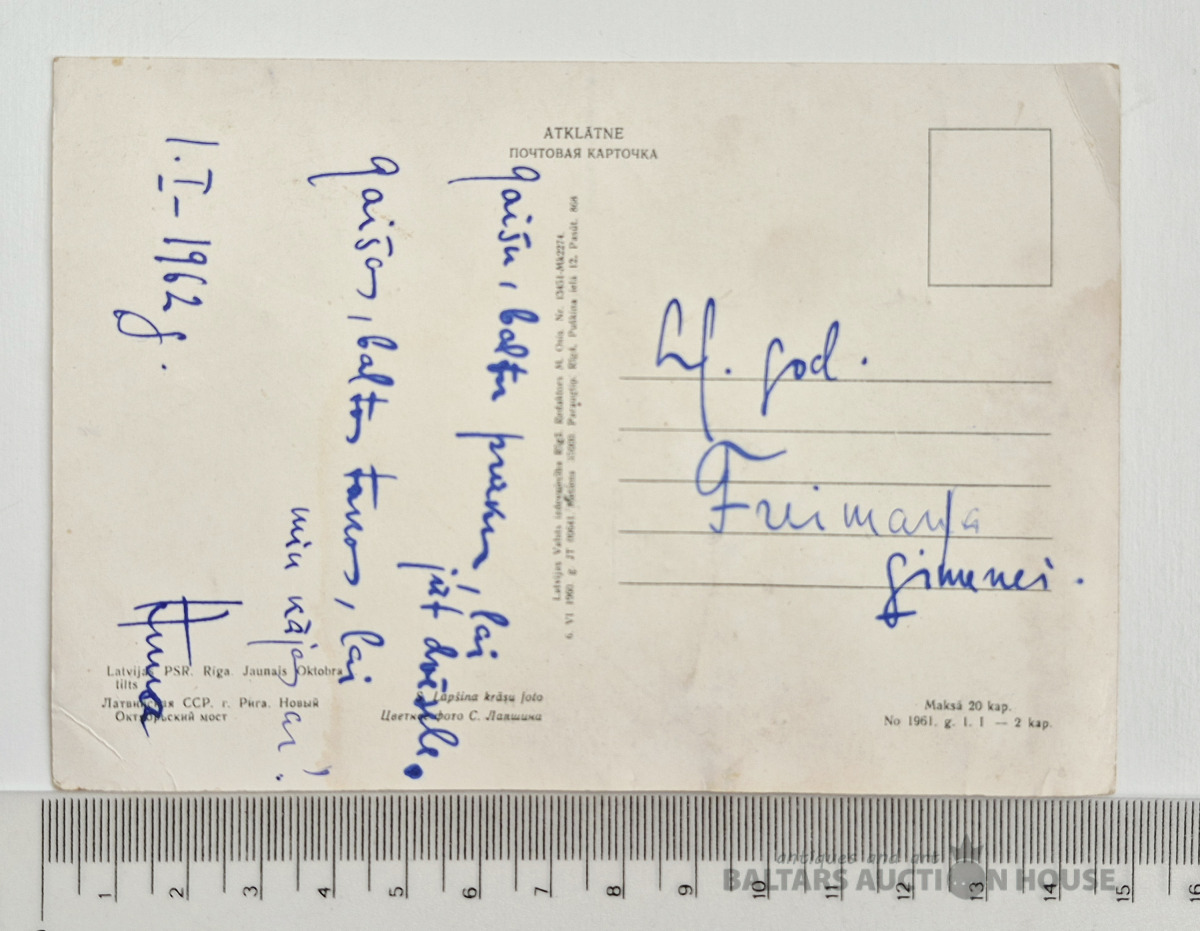 ATKLĀTNE
ПОЧТОВАЯ КАРТОЧКА
Gaišu, baltu prieku, lai
jūt dvēsele.
Gaišas, baltas takas, lai
min kājas ar!
1. I – 1962 g.
Anna
Latvijas Valsts izdevniecība Rīgā. Redaktors M. Osis. Nr. 13451-Mk2274.
6. VI 1960. g. JT 00641. Metiens 35000. Paraugtip. Rīgā, Puškina ielā 12. Pasūt. 868
Lf. god.
Freimaņa
ģimenei.
Latvijas PSR. Rīga. Jaunais Oktobra
tilts
Латвийская ССР. г. Рига. Новый
Октябрьский мост
Lapšina krāsu foto
Цветное фото С. Лапшина
Maksā 20 kap.
No 1961. g. 1. I — 2 kap.
1 2 3 4 5 6 7 8 9 10 11 12 13 14 15 16
antiques and art
BALTARS AUCTION HOUSE